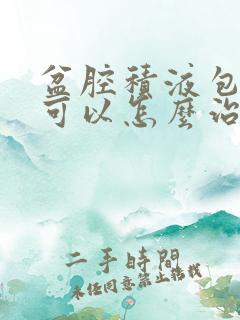 盆腔積液包
可以怎麼治
二手時間
未經同意禁止搬載